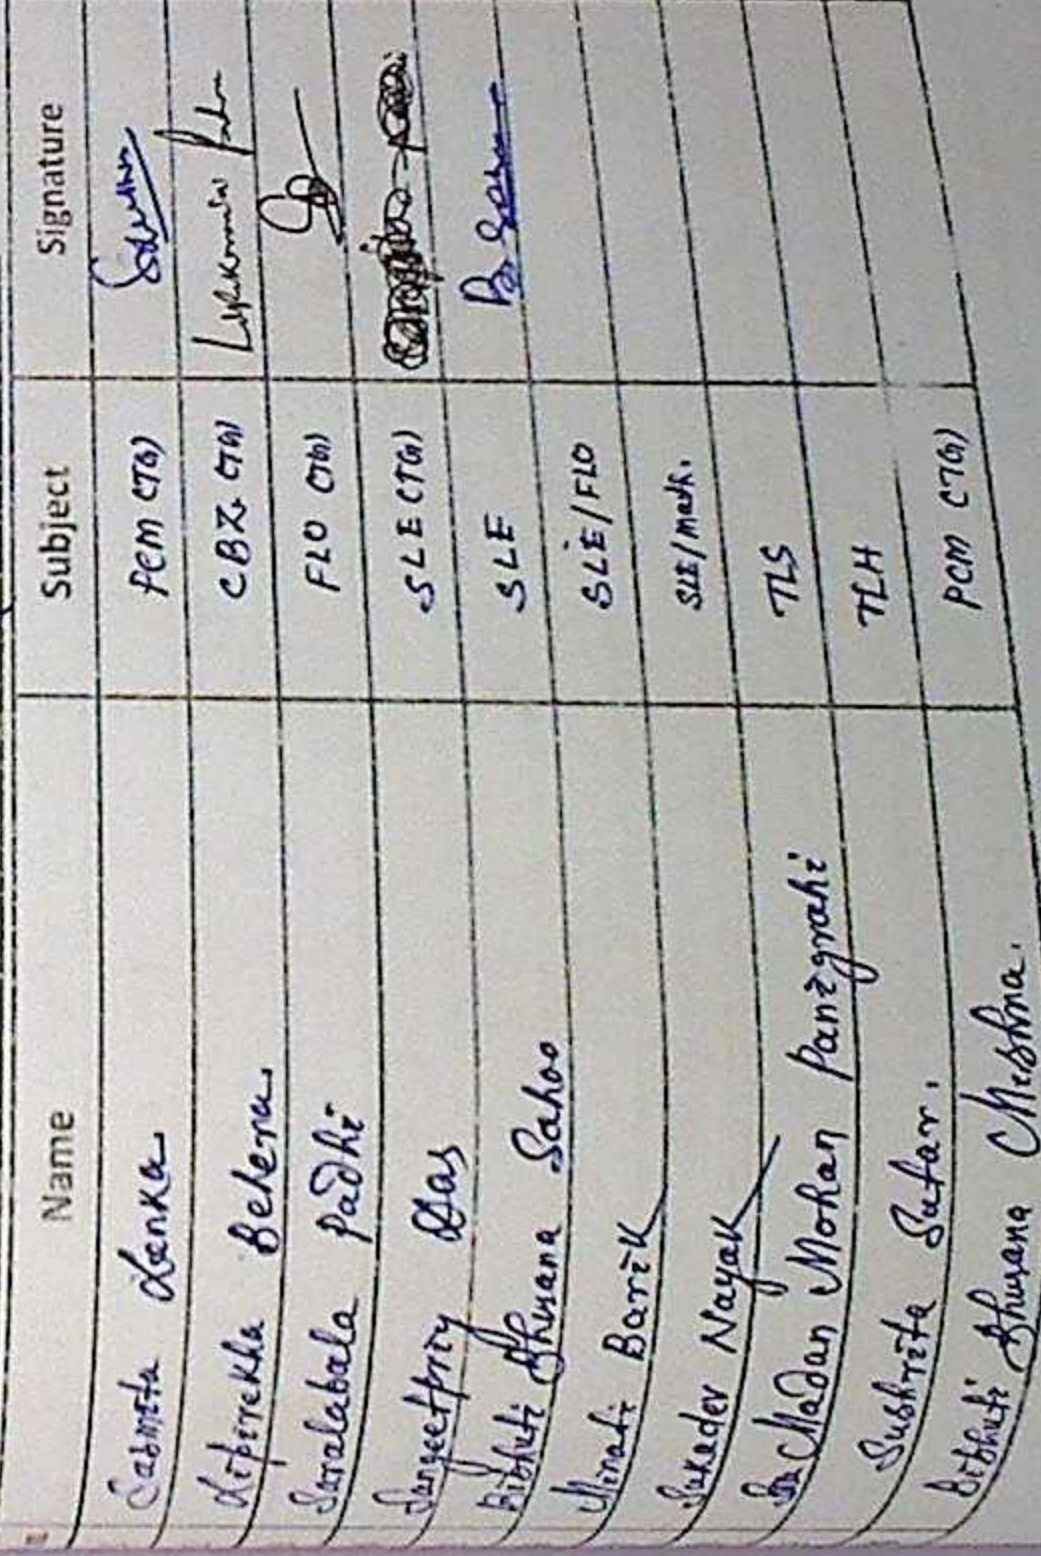 Name Subject Signature
Sasmita Lenka PCM CT(G)
Liprekha Behera CBZ CT(G)
Saralabala Padhi FLO CT(G)
Sangeetpriy Das SLE CT(G)
Bibhuti Bhusana Sahoo SLE B Sahoo
Minati Barik SLE/FLO
Sukadev Nayak SLE/Math.
Madan Mohan Panigrahi TLS
Sushrita Sutar. TLH
Bibhuti Bhusana Mishra. PCM CT(G)